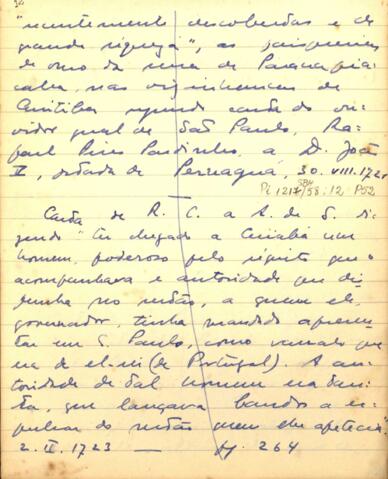 "recentemente descobertas e de
grande riqueza", as jazidas
de ouro da serra de Paranapia
caba, nas vizinhanças de
Curitiba segundo carta do ou
vidor geral de São Paulo, Ra
fael Pires Pardinho, a D. João
V, datada de Pernaguá, 30.VIII.1721
Pi 1217/58:12 P52
SBH
Carta de R. C. a A. de S. di
zendo "ter chegado a Cuiabá um
homem, poderoso pelo séquito que o
acompanhava e autoridade que dis
punha no sertão, a quem ele,
governador, tinha mandado apresen
tar em S. Paulo, como vassalo que
era de el-rei (de Portugal). A au
toridade de tal homem era tan
ta, que lançava bandos a ex
pulsar do sertão quem lhe apetecia".
2.II.1723 — pg. 264